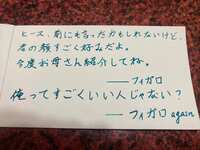 ヒース、前にも言ったかもしれないけど、
君の顔すごく好みだよ。
今度お母さん紹介してね。
――フィガロ
俺ってすごくいい人じゃない?
――フィガロ again